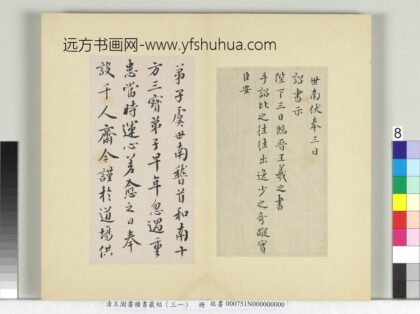 远方书画网-www.yfshuhua.com
世南伏奉三日
詔書示
陛下三日臨晉王羲之書
手詔比之往往出逸少之奇蹤實
臣安
弟子虞世南稽首和南十
方三寶弟子早年忽遇重
患當時運心差愈之日奉
設千人齋今謹於道場供
8
清王澍書積書巖帖(三一) 冊 故書 000751N000000000